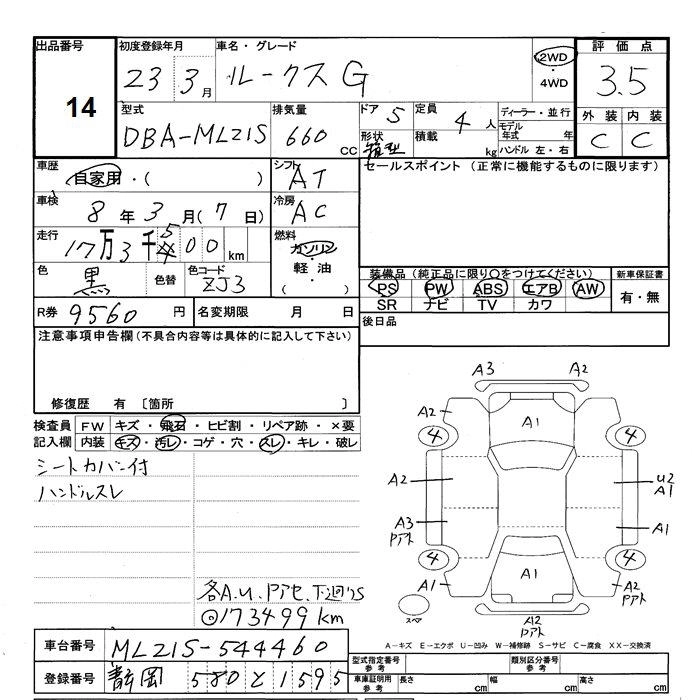 出品番号
14
初度登録年月
23 3月
車名・グレード
ルークス G
2WD
・
4WD
評価点
3.5
型式
DBA-ML21S
排気量
660 CC
ドア 5
形状 箱型
定員 4人
積載 kg
ディーラー・並行
モデル年式 年
ハンドル 左・右
外装 内装
C C
車歴
自家用・( )
シフト
AT
セールスポイント (正常に機能するものに限ります)
車検
8年3月(7日)
冷房
AC
走行
17万3千500km
燃料
ガソリン
・
軽油
・
( )
色
黒
色替
色コード
ZJ3
装備品(純正品に限り○をつけてください)
PS PW ABS エアB AW
SR ナビ TV カワ
新車保証書
有・無
R券 9560円
名変期限 月 日
後日品
注意事項申告欄(不具合内容等は具体的に記入して下さい)
修復歴 有 〔箇所 〕
検査員 FW キズ・飛石・ヒビ割・リペア跡・×要
記入欄 内装 キズ・汚レ・コゲ・穴・スレ・キレ・破レ
シートカバー付
ハンドルスレ
各A.U.Pアセ.下廻りS
◎173499km
A3 A2
A2 A1
4 4
A2 U2
A1
A3 Pアト A1
4 4
A1 A1 A2 Pアト
スペア
A2 Pアト
A-キズ E-エクボ U-凹み W-補修跡 S-サビ C-腐食 XX-交換済
車台番号 ML21S-544460
型式指定番号 参考
類別区分番号 参考
登録番号 静岡 580 と 1595
車庫証明用 参考
長さ cm 幅 cm 高さ cm